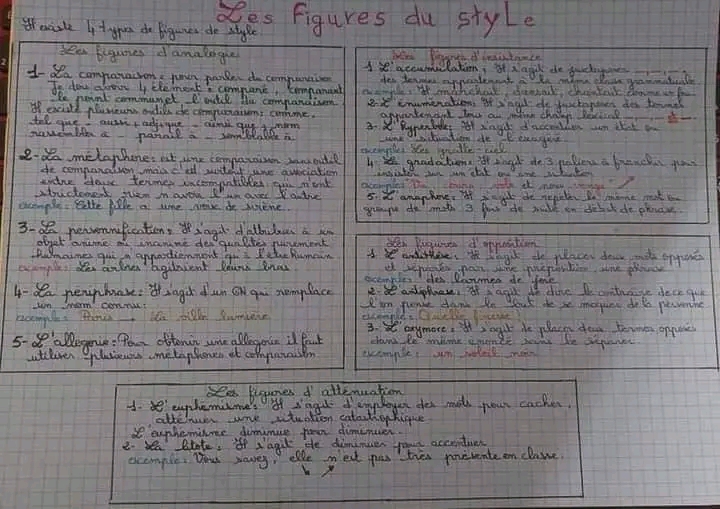 Les figures du style
Il existe 4 types de figures de style
Les figures d'analogie
1- La comparaison: pour parler du comparaison
je dois avoir 4 élément: comparé, comparant
le point commun et l'outil du comparaison
Il existe plusieurs outils de comparaison: comme,
tel que - aussi + adjque - ainsi que + nom
rassembler à pareil à semblable à
2- La métaphore: est une comparaison sans outil
de comparaison mais c'est surtout une association
entre deux termes incompatibles qui n'ont
strictement rien n'avoir l'un avec l'autre
exemple: Cette fille a une voix de sirène.
3- La personnification: Il s'agit d'attribuer à un
objet animé ou inanimé des qualités purement
humaines qui n'appartiennent qu'à l'être humain
exemple: Les arbres agitaient leurs bras
4- La periphrase: Il s'agit d'un GN qui remplace
un nom connu:
exemple: Paris : La ville lumière
5- L'allegorie: Pour obtenir une allegorie il faut
utiliser plusieurs métaphores et comparaison
Les figures d'insistance
1 L'accumulation: Il s'agit de juxtaposer
des termes appartenant à la même classe grammaticale
exemple: Il marchait, dansait, chantait comme un fou
2- L'énumération: Il s'agit de juxtaposer des termes
appartenant tous au même champ lexical
3- L'hyperbole: Il s'agit d'accentuer un état ou
une situation de l'exagérer
exemple: Les gratte-ciel
4- La gradation: Il s'agit de 3 paliers à franchir pour
insister sur un état ou une situation
exemple: Va, cours, vole et nous venge
5- L'anaphore: Il s'agit de répéter le même mot ou
groupe de mots 3 fois de suite en début de phrase.
Les figures d'opposition
1. L'antithèse: Il s'agit de placer deux mots opposés
et séparés par une préposition une phrase
exemple: des larmes de joie
2. L'antiphrase: Il s'agit de dire le contraire de ce que
l'on pense dans le but de se moquer de la personne
exemple: Quelle finesse
3. L'oxymore: Il s'agit de placer deux termes opposés
dans le même énoncé sans le séparer.
exemple: un soleil noir
Les figures d'atténuation
1- L'euphémisme: Il s'agit d'employer des mots pour cacher,
atténuer une situation catastrophique
L'euphémisme diminue pour diminuer.
2- La litote: Il s'agit de diminuer pour accentuer
exemple: Vous savez, elle n'est pas très présente en classe.